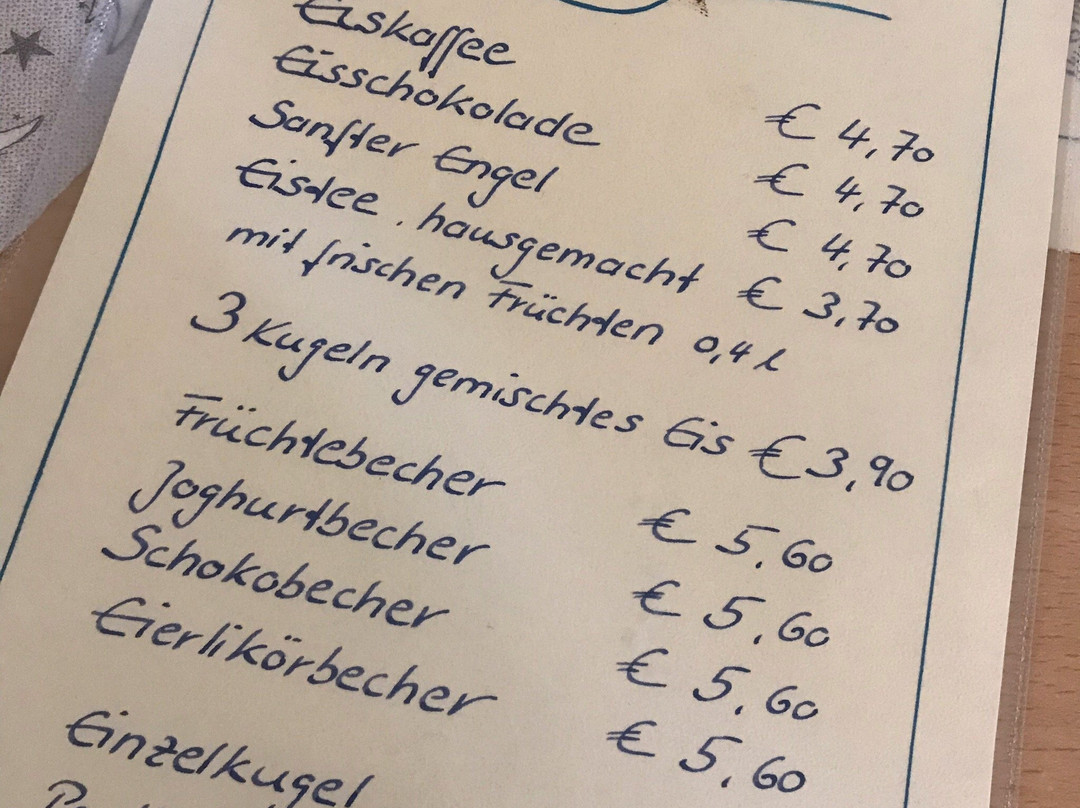 Eiskaffee € 4,70
Eisschokolade € 4,70
Sanfter Engel € 4,70
Eistee, hausgemacht € 3,70
mit frischen Früchten 0,4 l
3 Kugeln gemischtes Eis € 3,90
Früchtebecher € 5,60
Joghurtbecher € 5,60
Schokobecher € 5,60
Eierlikörbecher € 5,60
Einzelkugel